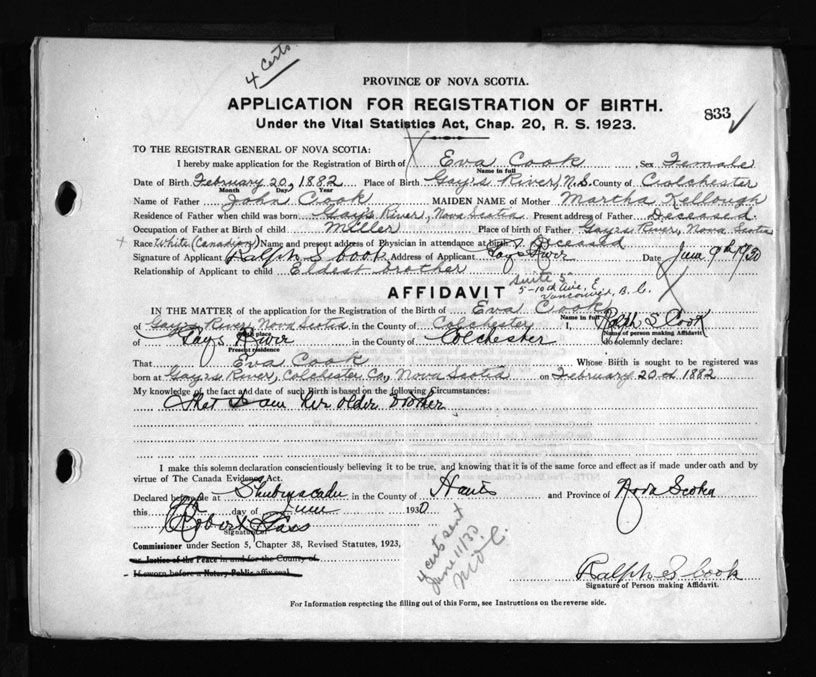 4 Certs
PROVINCE OF NOVA SCOTIA.
APPLICATION FOR REGISTRATION OF BIRTH.
833 ✓
Under the Vital Statistics Act, Chap. 20, R. S. 1923.
TO THE REGISTRAR GENERAL OF NOVA SCOTIA:
I hereby make application for the Registration of Birth of Eva Cook Sex Female
Name in full
Date of Birth February 20, 1882 Place of Birth Gay's River, N.S. County of Colchester
Month Day Year
Name of Father John Cook MAIDEN NAME of Mother Martha Kellough
Residence of Father when child was born Gay's River, Nova Scotia Present address of Father Deceased
Occupation of Father at Birth of child Miller Place of birth of Father Gays River, Nova Scotia
Race White (Canadian) Name and present address of Physician in attendance at birth Deceased
Signature of Applicant Ralph S Cook Address of Applicant Gays River Date June 9th 1930
Relationship of Applicant to child Eldest brother
Suite 5
5-10th Ave, E
Vancouver, B. C.
AFFIDAVIT
IN THE MATTER of the application for the Registration of the Birth of Eva Cook
Name in full
of Gay's River, Nova Scotia in the County of Colchester I, Ralph S Cook
Birth place Name of person making Affidavit
of Gays River in the County of Colchester do solemnly declare:
Present residence
That Eva Cook Whose Birth is sought to be registered was
born at Gay's River, Colchester Co., Nova Scotia on February 20 1882
My knowledge of the fact and date of such Birth is based on the following Circumstances:
That I am her older brother
I make this solemn declaration conscientiously believing it to be true, and knowing that it is of the same force and effect as if made under oath and by
virtue of The Canada Evidence Act.
Declared before me at Shubenacadie in the County of Hants and Province of Nova Scotia
this day of June 1930
Robert
Signature
Commissioner under Section 5, Chapter 38, Revised Statutes, 1923,
or Justice of the Peace in and for the County of
If sworn before a Notary Public affix seal
4 certs sent
June 11/30
M.W.C.
Ralph S Cook
Signature of Person making Affidavit.
For Information respecting the filling out of this Form, see Instructions on the reverse side.